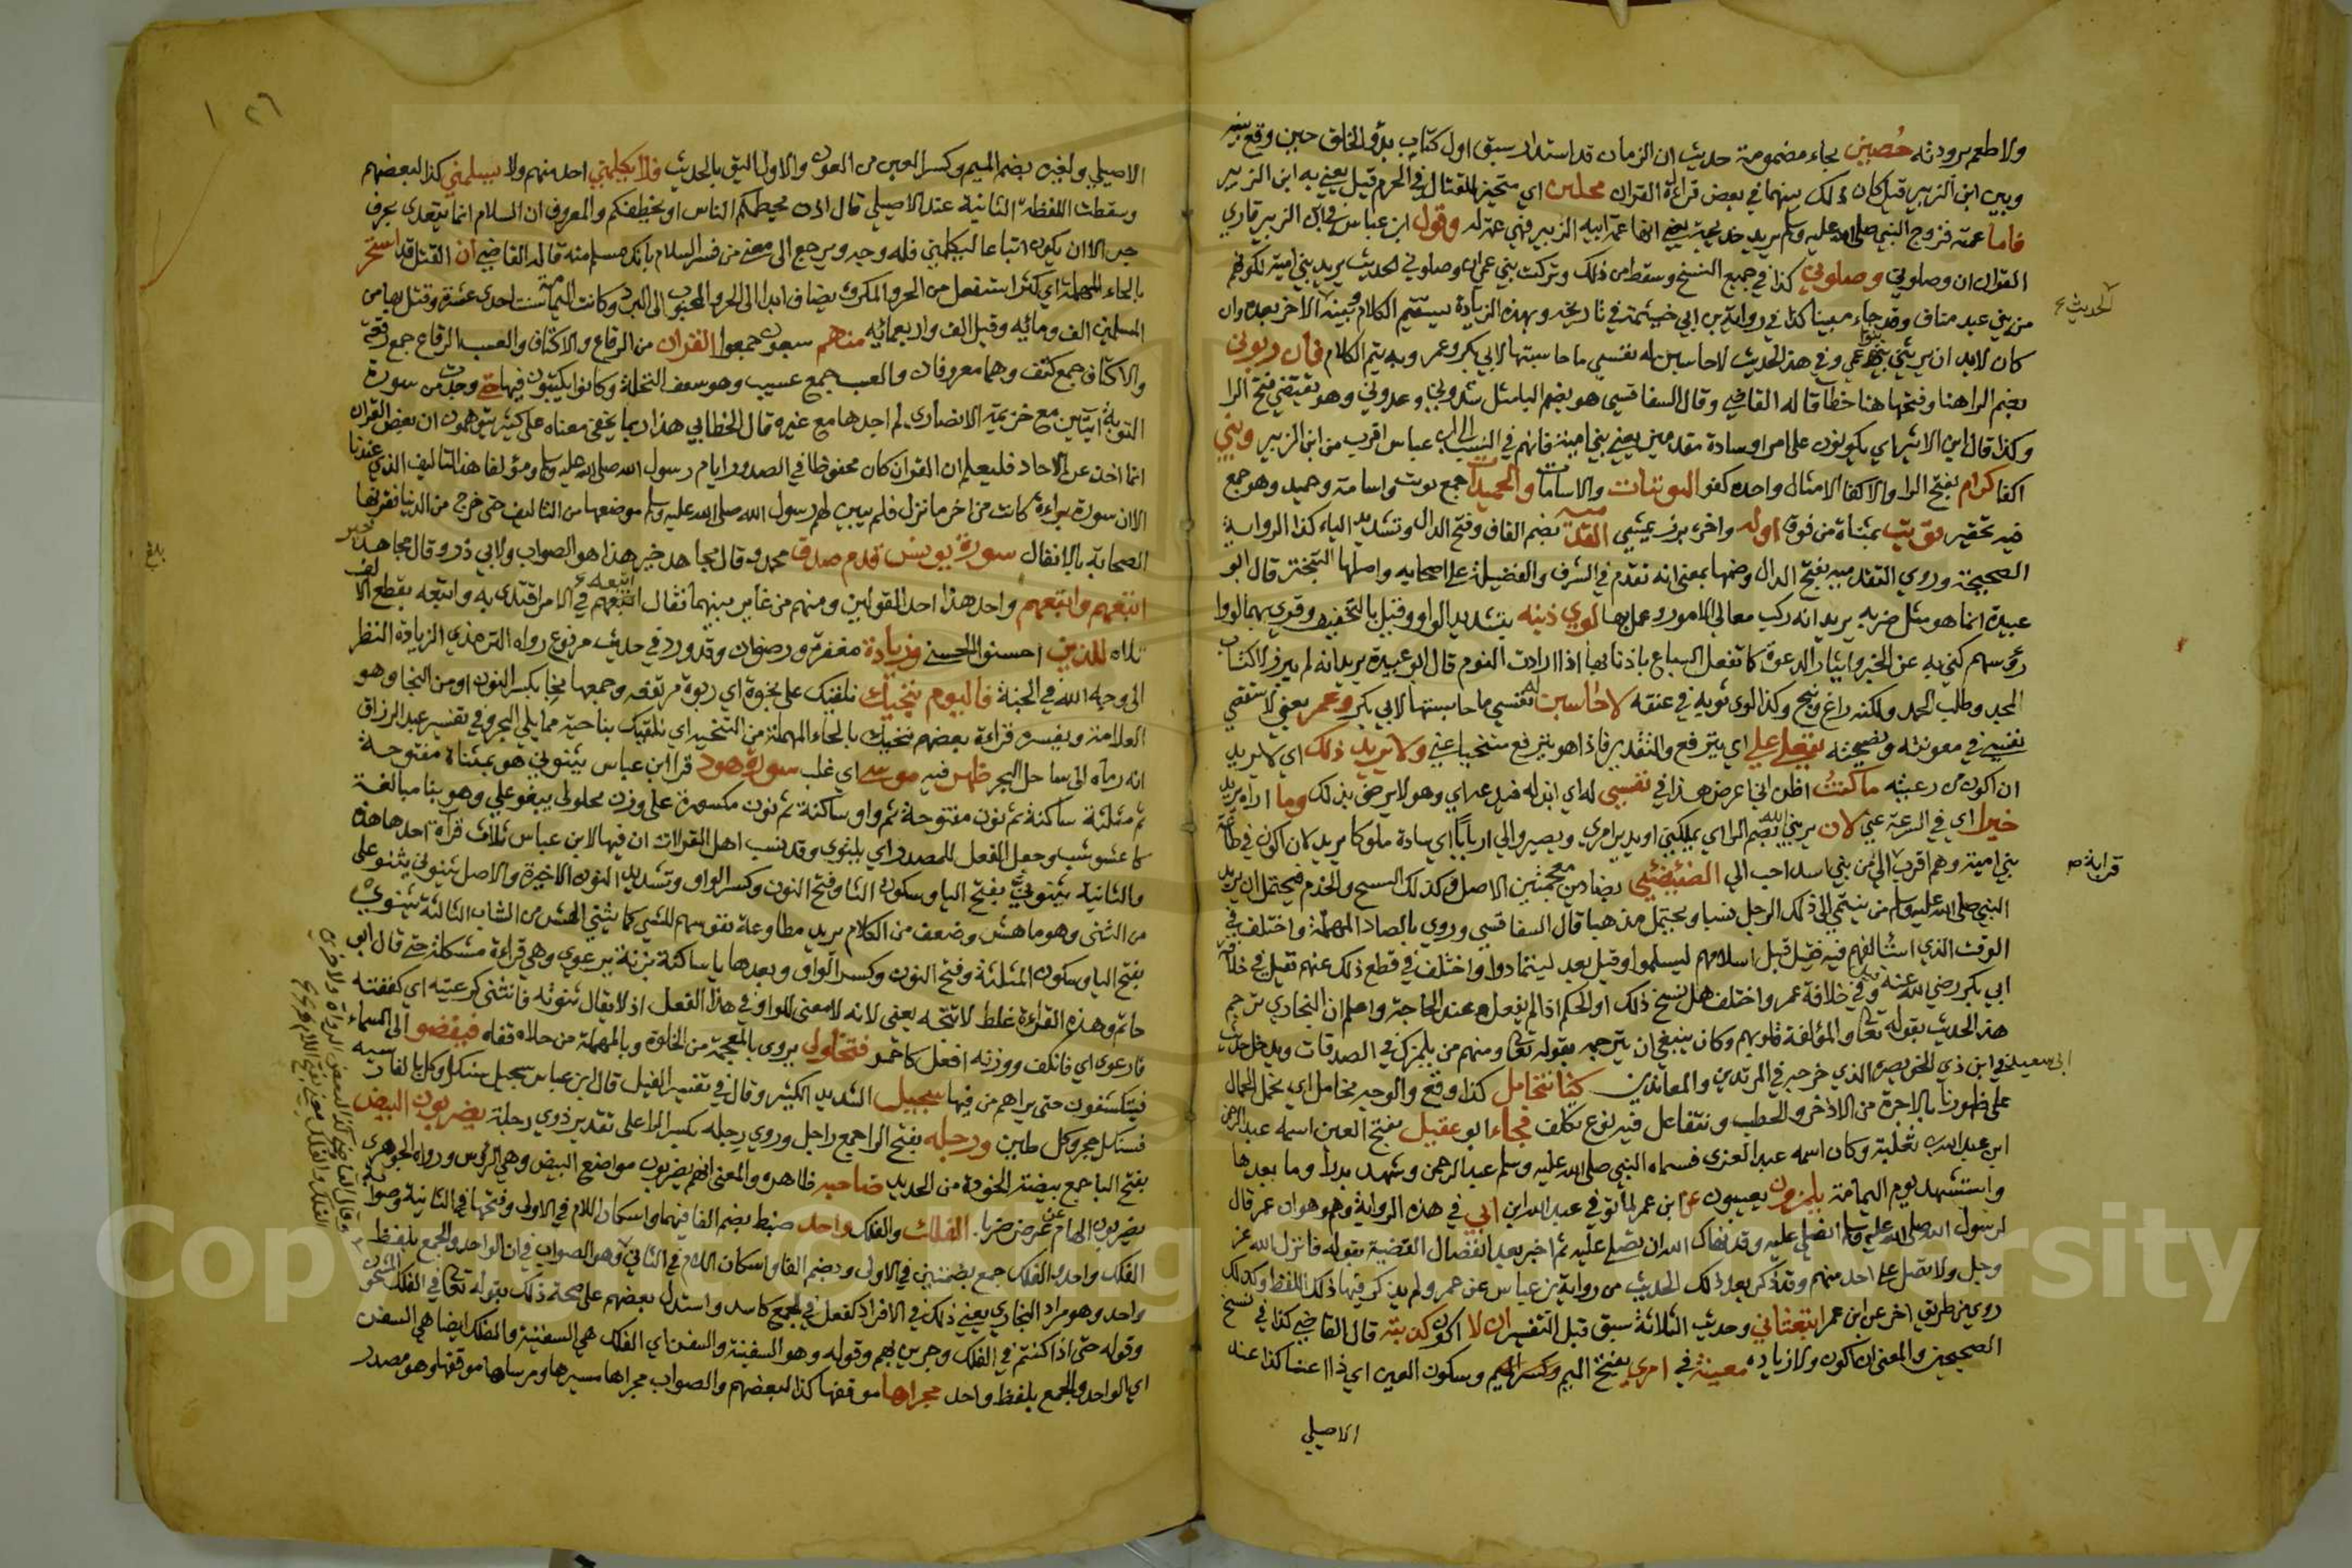 ولا طعم برودته حُصين بحاء مضمومة حديث ان الزمان قد استدار سبق اول كتاب بدؤ الخلق حين وقع بينه
وبين ابن الزبير قيل كان ذلك بينهما في بعض قراءة القران محلين اي متحيز للقتال في الحرم قيل يعني به ابن الزبير
فاما عمته فزوج النبي صلى الله عليه وسلم يريد خديجة يعني انها عمة ابيه الزبير فهي عمة له وقول ابن عباس في ابن الزبير قاري
القران ان وصلوني وصلوني كذا في جميع النسخ وسقط من ذلك وتركت بني عمي ان وصلوني الحديث يريد بني امية لكونهم
من بني عبد مناف وقد جاء مبينا كذا في رواية بن ابي خيثمة في تاريخه وبهذه الزيادة يستقيم الكلام وبينه الاخر بعده وان
كان لابد ان يربني بنوا عمي وفي هذا الحديث لاحاسبن له نفسي ما حاسبتها لابي بكر وعمر وبه يتم الكلام فان ربوني
بضم الرا هنا وفتحها هنا خطأ قاله القاضي وقال السفاقسي هو بضم البا مثل شدوني وعدوني وهو يقتضي فتح الرا
وكذا قال ابن الاثير اي يكونون علي امرا وسادة مقدمين يعني بني امية فانهم في النسب الى ابن عباس اقرب من ابن الزبير وبني
اكفا كرام بفتح الرا والاكفا الامثال واحده كفو التويتات والاسامات والحميدات جمع تويت واسامة وحميد وهو جمع
فيه تحقير تويت بمثناة من فوق اوله واخره برز يمشي القدمية بضم القاف وفتح الدال وتشديد الياء كذا الرواية
الصحيحة وروي التقدمية بفتح الدال وضمها بمعنى انه تقدم في الشرف والفضيلة على اصحابه واصلها التبختر قال ابو
عبيدة انما هو مثل ضربه يريد انه ركب معالي الامور وعمل بها لوي ذنبه بتشديد الواو وقيل بالتخفيف وقري بهما لووا
رؤسهم كني به عن الخبر وايثار الدعوة كما تفعل السباع باذنابها اذا ارادت النوم قال ابو عبيدة يريد انه لم يبرز لاكتساب
المجد وطلب الحمد ولكنه راغ وتنحى وكذا لوى ثوبه في عنقه لاحاسبن له نفسي ما حاسبتها لابي بكر وعمر يعني لاستقصي
نفسي في معونته ونصيحته يتعلى علي اي يترفع والتقدير فاذا هو يترفع متنحيا عني ولا يريد ذلك اي لا يريد
ان اكون من رعيته ما كنتُ اظن اني اعرض هذا في نفسي له اي ابذله فيدعه اي وهو لا يرضى بذلك وما اراه يريد
خيرا اي في السرعة عني لان يربني بضم الرا اي يملكني او يدبر امري ويصير والي اربابا اي سادة ملوكا يريد لان اكون في طاعة
بني امية وهم اقرب الي من بني اسد احب الي الضئضئي بضادين معجمتين الاصل وكذلك السنخ والجذم فيحتمل ان يريد
النبي صلى الله عليه وسلم من ينتمي الى ذلك الرجل نسبا ويحتمل مذهبا قال السفاقسي وروي بالصاد المهملة واختلف في
الوقت الذي استألفهم فيه فقيل قبل اسلامهم ليسلموا وقيل بعد ليتمادوا واختلف في قطع ذلك عنهم فقيل في خلافة
ابي بكر رضي الله عنه وقيل في خلافة عمر واختلف هل نسخ ذلك او الحكم اذا لم يفعل عند الحاجة واعلم ان البخاري ترجم
هذا الحديث بقوله تعالى والمؤلفة قلوبهم وكان ينبغي ان يترجمه بقوله تعالى ومنهم من يلمزك في الصدقات ويدخل حديث
ابي سعيد في ابن ذي الخويصرة الذي خرج به في المرتدين والمعاندين كنا نتحامل كذا وقع والوجه نحامل اي نحمل الحمال
على ظهورنا بالاجرة من الاذخر والحطب ونتفاعل فيه نوع تكلف فجاء ابو عقيل بفتح العين اسمه عبد الرحمن
ابن عبد الله بن ثعلبة وكان اسمه عبد العزى فسماه النبي صلى الله عليه وسلم عبد الرحمن وشهد بدرا وما بعدها
واستشهد يوم اليمامة يلمزون يعيبون عن ابن عمر لما توفي عبد الله ابن ابي في هذه الرواية وهم وهو ان عمر قال
لرسول الله صلى الله عليه وسلم اتصلي عليه وقد نهاك الله ان تصلي عليه ثم اخبر بعد انفصال القضية بقوله فانزل الله عز
وجل ولا تصل على احد منهم وقد ذكر بعد ذلك الحديث من رواية بن عباس عن عمر ولم يذكر فيها ذلك اللفظ وكذلك
روي من طريق اخر عن ابن عمر ابتعثاني وحديث الثلاثة سبق قبل التفسير ان لا اكون كذبته قال القاضي كذا في نسخ
الصحيحين والمعنى ان اكون ولا زيادة معينة في امري بفتح الميم وكسرالميم وسكون العين اي ذا اعتنا كذا عند
الاصيلي
الحديث
قرابة
٢٦ ١
الاصيلي ولغيره بضم الميم وكسر العين من العون والاول اليق بالحديث فلا يكلمني احد منهم ولا يسلمني كذا لبعضهم
وسقطت اللفظة الثانية عند الاصيلي قال اذن يحطمكم الناس او يخطفكم والمعروف ان السلام انما يتعدى بحرف
جر الا ان يكون اتباعا ليكلمني فله وجه ويرجع الى معنى من فسر السلام بانك مسلم منه قاله القاضي ان القتل قد استحر
بالحاء المهملة اي كثر استفعل من الحر والمكروه يضاف ابدا الى الحر والمحبوب الى البرد وكانت اليمامة سنت احدى عشرة وقتل بها من
المسلمين الف ومائيه وقيل الف واربعمائه منهم سبعون جمعوا القران من الرقاع والاكتاف والعسب الرقاع جمع رقعة
والاكتاف جمع كتف وهما معروفان والعسب جمع عسيب وهو سعف النخلة وكانوا يكتبون فيها حتى وجدت من سورة
التوبة ايتين مع خزيمة الانصاري لم اجدها مع غيره قال الخطابي هذا ربما يخفى معناه على كثير يتوهمون ان بعض القران
انما اخذ عن الاحاد فليعلم ان القران كان محفوظا في الصدور ايام رسول الله صلى الله عليه وسلم ومؤلفا هذا التاليف الذي عندنا
الان سورة براءة كانت من اخر ما نزل فلم يبين لهم رسول الله صلى الله عليه وسلم موضعها من التاليف حتى خرج من الدنيا فقرنها
الصحابة بالانفال سورة يونس قدم صدق محمد وقال مجاهد خير هذا هو الصواب ولابي ذر وقال مجاهد خير
اتبعهم واتبعهم واحد هذا احد القولين ومنهم من غاير بينهما فقال اتبعهم في الامر اقتدى به واتبعه بقطع الالف
تلاه للذين احسنوا الحسنى وزيادة مغفرة ورضوان وقد ورد في حديث مرفوع رواه الترمذي الزيادة النظر
الى وجه الله في الجنة فاليوم ننجيك نلقيك على نجوة اي ربوة مرتفعه وجمعها نجا بكسر النون او من النجا وهو
العلامة ويفسره قراءة بعضهم ننحيك بالحاء المهملة من التنحيه اي نلقيك بناحية مما يلي البحر وفي تفسير عبد الرزاق
انه رماه الى ساحل البحر ظهر فيه موسى اي غلب سورة هود قرا ابن عباس يثنوني هو بمثناة مفتوحة
ثم مثلثة ساكنة ثم نون مفتوحة ثم واو ساكنة ثم نون مكسورة على وزن يحلولي يبغو علي وهو بنا مبالغة
كاعشوشب وجعل الفعل للمصدر اي يلتوي وقد نسب اهل القراات ان فيها لابن عباس ثلاث قرآة احدها هذه
والثانية يثنون بفتح اليا وسكون الثا وفتح النون وكسر الواو وتشديد النون الاخيرة والاصل يثنوني يثنو علي
من الثنى وهو ما هش وضعف من الكلام يريد مطاوعة نفوسهم للشي كما يثني الهش من الشاب الثالثة يثنوي
بفتح اليا وسكون المثلثة وفتح النون وكسر الواو وبعدها يا ساكنة بزنة يرعوي وهي قراءة مشكلة حتى قال ابو
حاتم وهذه القراءة غلط لا تتجه يعني لانه لا معنى للواو في هذا الفعل اذ لا يقال ثنوته فانثنى كرعيته اي كففته
فارعوى اي فانكف ووزنه افعل كاحمر فتخلوا يروى بالمعجمة من الخلوة وبالمهملة من حلاه قفاه فيفضوا الى السماء
فيتكشفون حتى يراهم من فيها سجيل الشديد الكثير وقال في تفسير الفيل قال ابن عباس سجيل سنك وكل بالفارسية
فسنك حجر وكل طين ورجله بفتح الرا جمع راجل وروي رجله بكسر الرا على تقدير ذوي رجلة يضربون البيض
بفتح البا جمع بيضة الخوذة من الحديد ضاحيه ظاهره والمعنى انهم يضربون مواضع البيض وهي الرؤس ورواه الجوهري
يضربون الهام عن عرض ضربا الفلك والفلك واحد ضبط بضم الفا فيهما واسكان اللام في الاولى وفتحها في الثانية وصوابه
الفلك واحد والفلك جمع بضمتين في الاولى وبضم الفا واسكان اللام في الثاني وهو الصواب فان الواحد والجمع بلفظ
واحد وهو مراد البخاري يعني ذلك في الافراد كقفل في الجمع كاسد واستدل بعضهم على صحة ذلك بقوله تعالى في الفلك المشحون
وقوله حتى اذا كنتم في الفلك وجرين بهم وقوله وهو السفينة والسفن اي الفلك هي السفينة والفلك ايضا هي السفن
اي الواحد والجمع بلفظ واحد مجراها موقفها كذا لبعضهم والصواب مجراها مسيرها ومرساها موقفها وهو مصدر
بلغ
وقال القاضي كذا لبعض الرواة ولاخرين
الفلك والفلك يعني بفتح اللام
Copyright © King Saud University